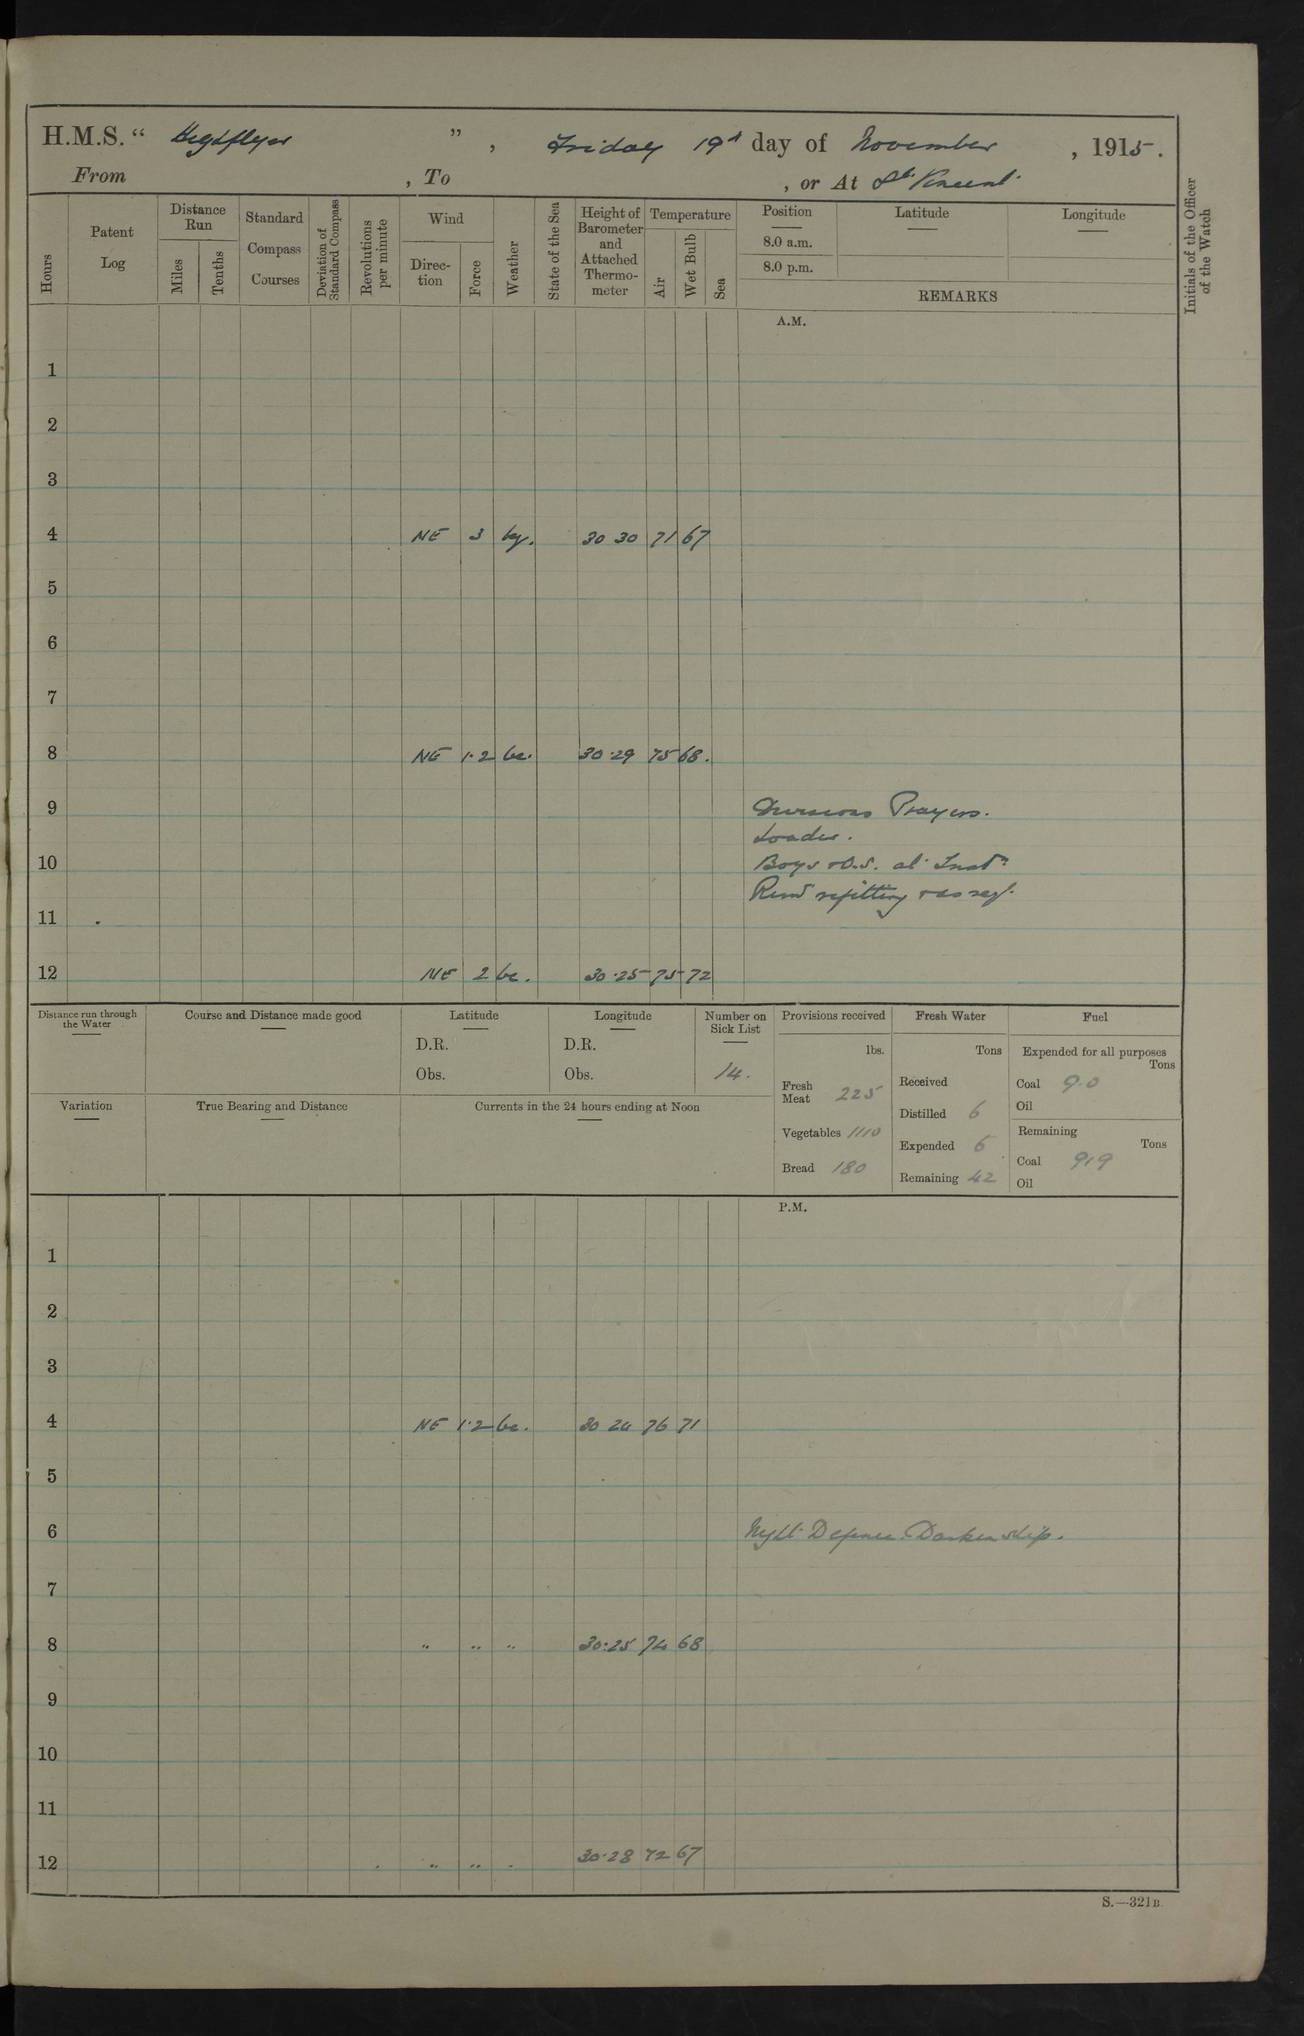 H.M.S. " Highflyer ", Friday 19th day of November, 1915.
From , To , or At St Vincent
Hours
Patent Log
Distance Run
Miles
Tenths
Standard Compass Courses
Deviation of Standard Compass
Revolutions per minute
Wind
Direc-tion
Force
Weather
State of the Sea
Height of Barometer and Attached Thermo-meter
Temperature
Air
Wet Bulb
Sea
Position
8.0 a.m.
8.0 p.m.
Latitude
Longitude
REMARKS
Initials of the Officer of the Watch
A.M.
1
2
3
4 NE 3 30 30 71 67
5
6
7
8 NE 1·2 bc. 30·29 75 68.
9 Divisions Prayers.
Loader.
10 Boys & O.S. at Instn
Remdr refitting & as req.
11
12 NE 2 bc. 30·25 75 72
Distance run through the Water
Course and Distance made good
Latitude
D.R.
Obs.
Longitude
D.R.
Obs.
Number on Sick List
14.
Provisions received
lbs.
Fresh Meat 225
Vegetables 1110
Bread 180
Fresh Water
Tons
Received
Distilled 6
Expended 6
Remaining 42
Fuel
Expended for all purposes
Tons
Coal 9.0
Oil
Remaining
Tons
Coal 919
Oil
Variation
True Bearing and Distance
Currents in the 24 hours ending at Noon
P.M.
1
2
3
4 NE 1·2 bc. 30 24 76 71
5
6 Night Defence. Darken ship.
7
8 " " " 30·25 74 68
9
10
11
12 " " 30·28 72 67
S.—321B.